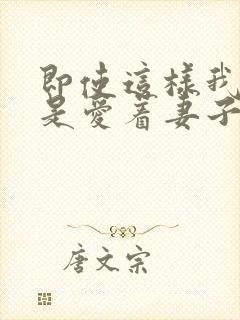 即使這樣我
是愛着妻子
唐文宗